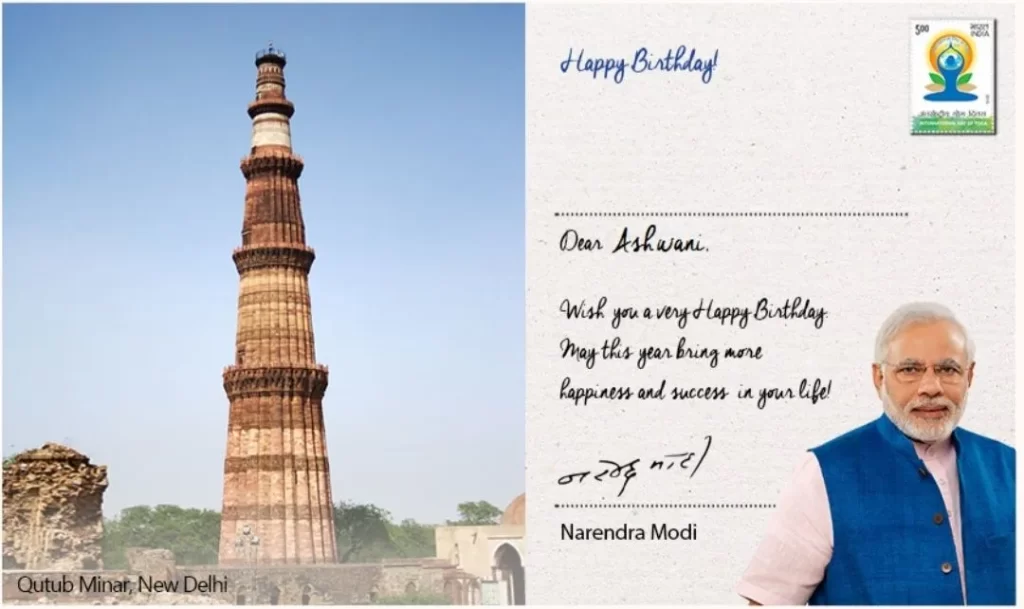 Happy Birthday!
5.00
भारत
INDIA
अंतर्राष्ट्रीय योग दिवस
INTERNATIONAL DAY OF YOGA
Dear Ashwani,
Wish you a very Happy Birthday.
May this year bring more
happiness and success in your life!
नरेन्द्र मोदी
Narendra Modi
Qutub Minar, New Delhi